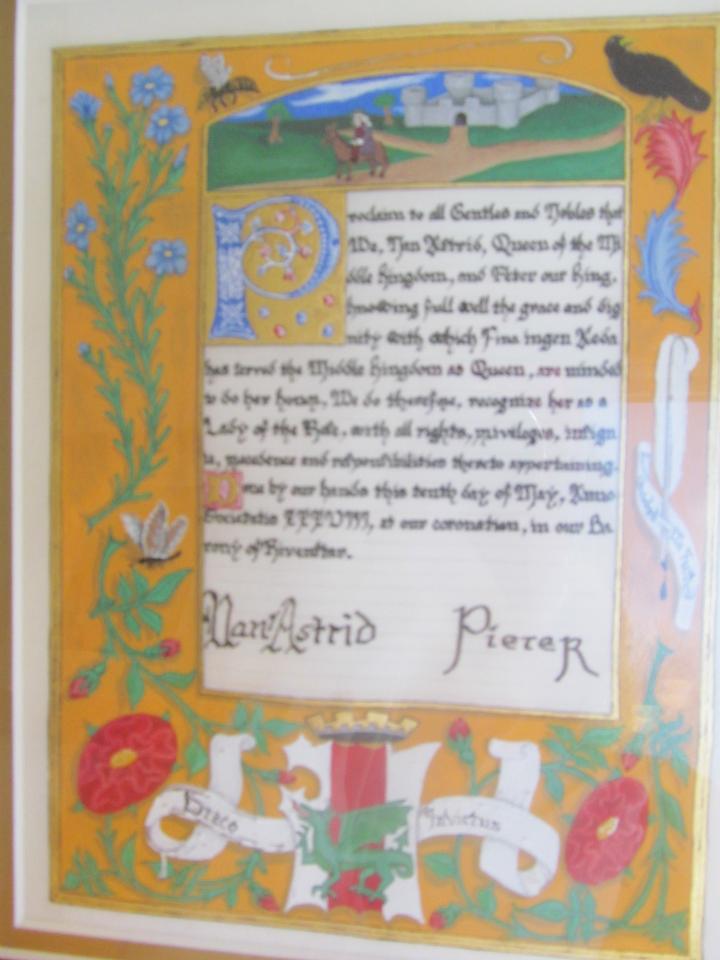 Proclaim to all Gentles and Nobles that
We, Nan Astrid, Queen of the Mi
ddle Kingdom, and Pieter our King,
knowing full well the grace and dig
nity with which Fina ingen Aeda
has served the Middle Kingdom as Queen, are minded
to do her honor, We do therefore, recognize her as a
Lady of the Rose, with all rights, privileges, insign
ia, precedence and responsibilities thereto appertaining.
Done by our hands this tenth day of May, Anno
Societatis XXXVIII, at our coronation, in our Ba
rony of Rivenstar.
Nan Astrid Pieter R
Draco Invictus